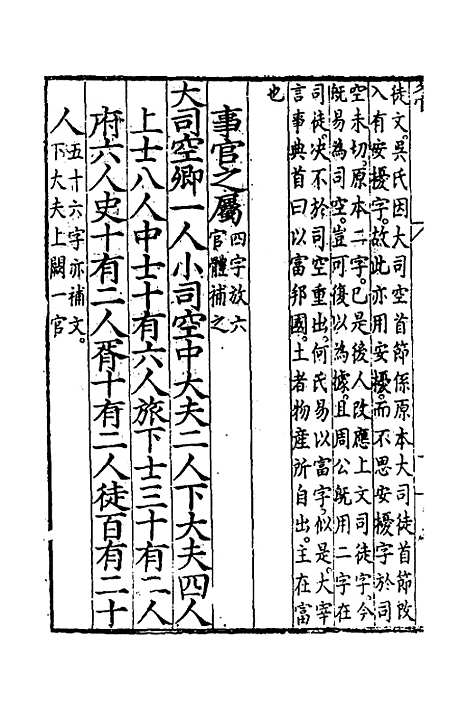 徒文。吳氏因大司空首節係原本大司徒首節改
入有安擾字。故此亦用安擾。而不思安擾字於司
空未切。原本二字。已是後人改應上文司徒字。今
既易為司空。豈可復以為據。且周公既用二字在
司徒。決不於司空重出。何氏易以富字。似是。大宰
言事典首曰以富邦國。土者物產所自出。主在富
也
事官之屬四字放六官體補之
大司空卿一人小司空中大夫二人下大夫四人
上士八人中士十有六人旅下士三十有二人
府六人史十有二人胥十有二人徒百有二十
人五十六字亦補文。下大夫上闕一官